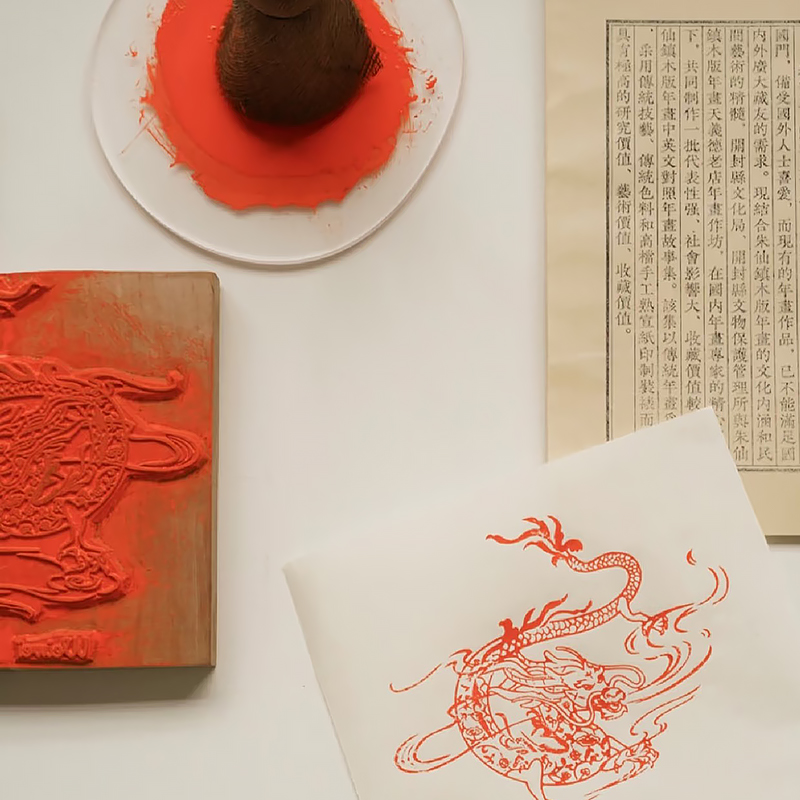 國門，備受國外人士喜愛，而現有的年畫作品，已不能滿足國
內外廣大藏友的需求。現結合朱仙鎮木版年畫的文化內涵和民
間藝術的精髓，開封縣文化局、開封縣文物保護管理所與朱仙
鎮木版年畫天義德老店年畫作坊，在國内年畫專家的精
下，共同制作一批代表性强、社會影響大、收藏價值較
仙鎮木版年畫中英文對照年畫故事集。該集以傳統年畫
，采用傳統技藝、傳統色料和高檔手工熟宣紙印制裝裱而
具有極高的研究價值、藝術價值、收藏價值。